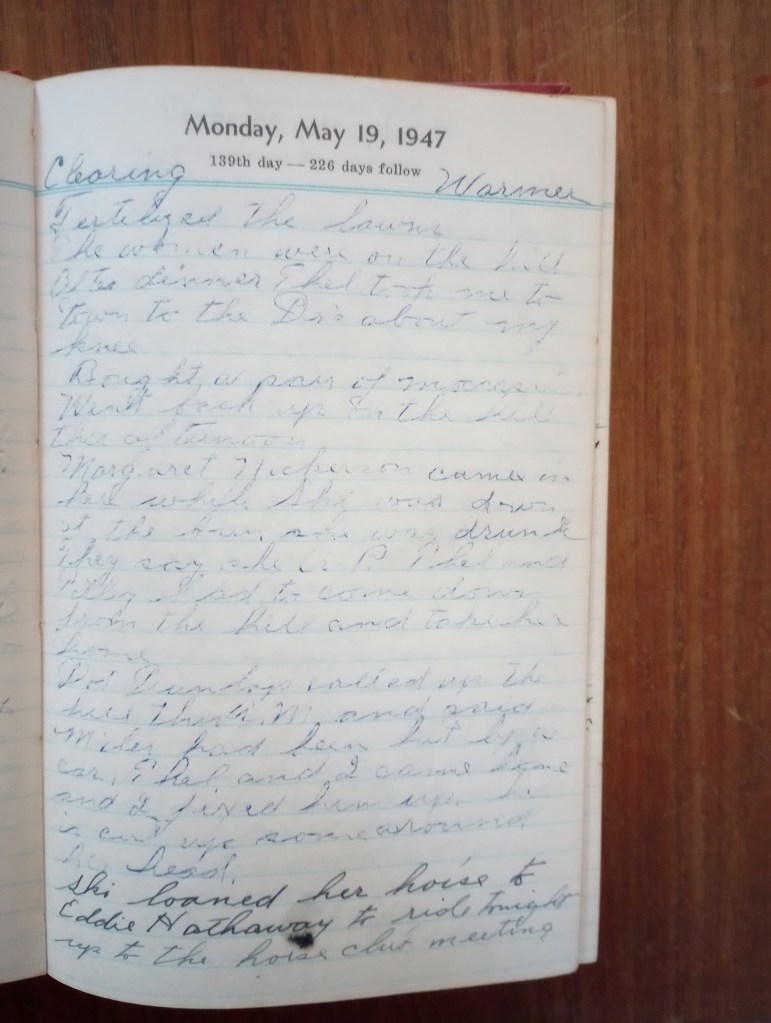 Monday, May 19, 1947
139th day — 226 days follow
Clearing Warmer
Fertilized the lawn
The women were on the hill
After dinner Thel took me to
town to the Dr's about my
knee
Bought a pair of
Went back up on the hill
this afternoon
Margaret Nickerson came in
here while Ski was down
at the barn, she was drunk
They say she is P. Thel and
had to come down
from the hill and take her
home
Dot Dunlop called up the
hill this P.M. and said
had been hit by a
car, Thel and I came home
and I fixed him up. he
is cut up some around
his head.
Ski loaned her horse to
Eddie Hathaway to ride tonight
up to the horse club meeting